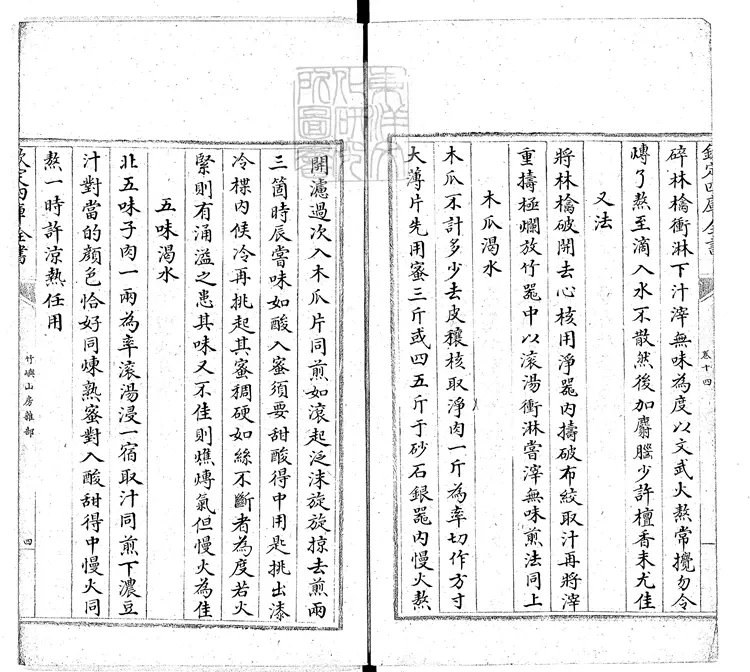 欽定四庫全書
卷十四
碎林檎衝淋下汁滓無味為度以文武火熬常攪勿令
𤎅了熬至滴入水不散然後加麝腦少許檀香末尤佳
又法
將林檎破開去心核用淨器内擣破布絞取汁再將滓
重擣極爛放竹器中以滚湯衝淋嘗滓無味煎法同上
木瓜渴水
木瓜不計多少去皮穰核取淨肉一斤為率切作方寸
大薄片先用蜜三斤或四五斤于砂石銀器内慢火熬
開濾過次入木瓜片同煎如滚起泛沫旋旋掠去煎兩
三箇時辰嘗味如酸入蜜須要甜酸得中用匙挑出漆
冷楪内候冷再挑起其蜜稠硬如絲不斷者為度若火
緊則有涌溢之患其味又不佳則燋𤎅氣但慢火為佳
五味渴水
北五味子肉一兩為率滚湯浸一宿取汁同煎下濃豆
汁對當的顔色恰好同煉熟蜜對入酸甜得中慢火同
熬一時許涼熱任用
欽定四庫全書
竹嶼山房雜部
四